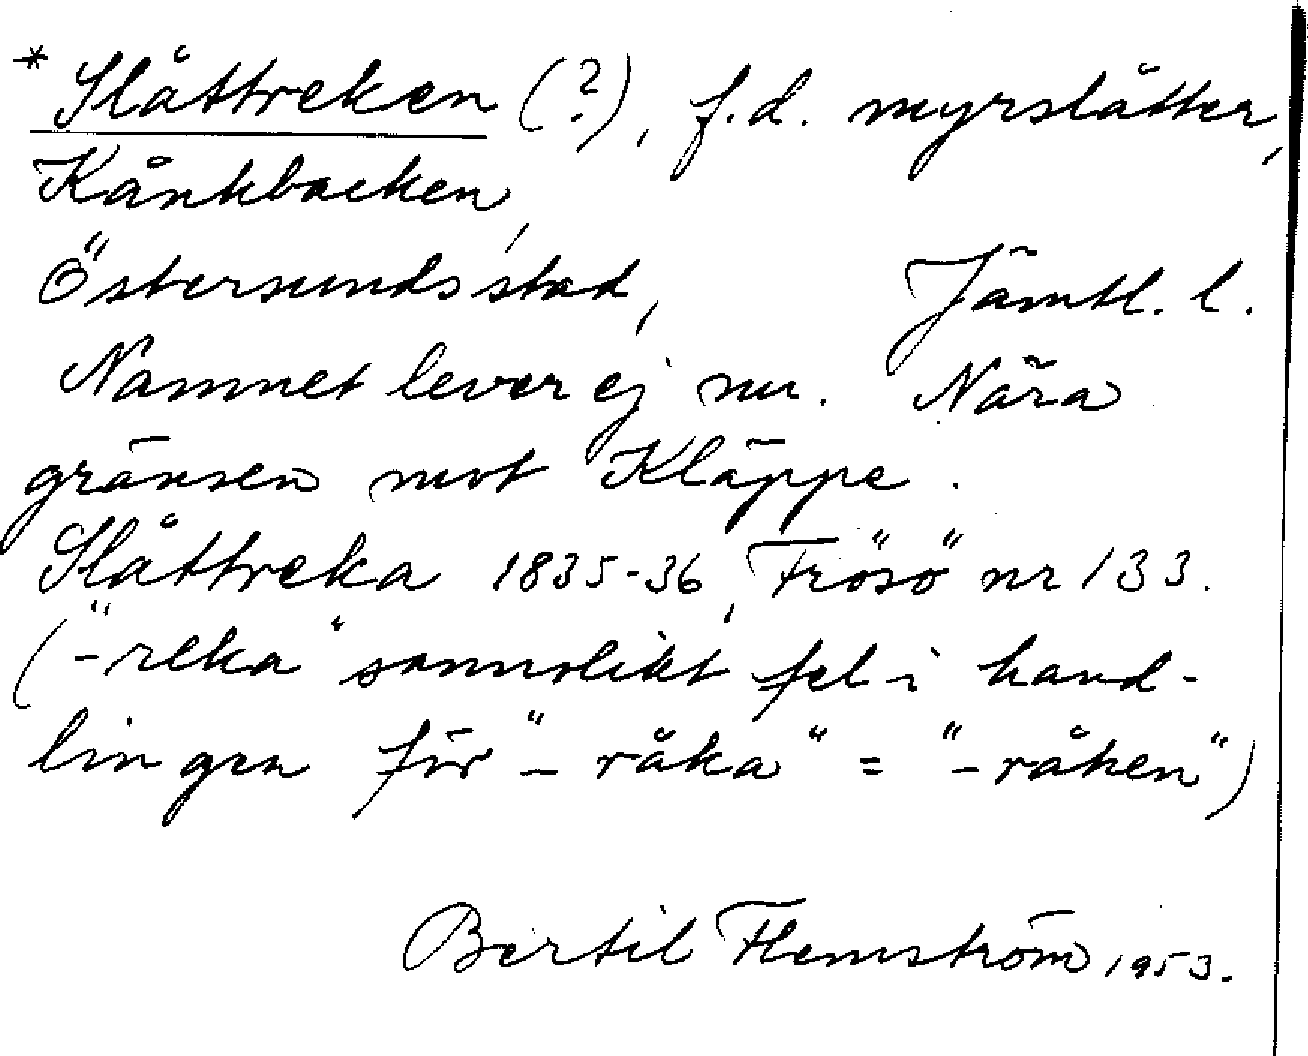 * Slåttreken (?), f.d. myrslåtter,
Kånkbacken,
Östersunds stad, Jämtl. l.
Namnet lever ej nu. Nära
gränsen mot Kläppe.
Slåttreka 1835-36, Frösö nr 133.
("-reka" sannolikt fel i hand-
lingen för "-råka" = "-råken")
Bertil Flemström 1953.